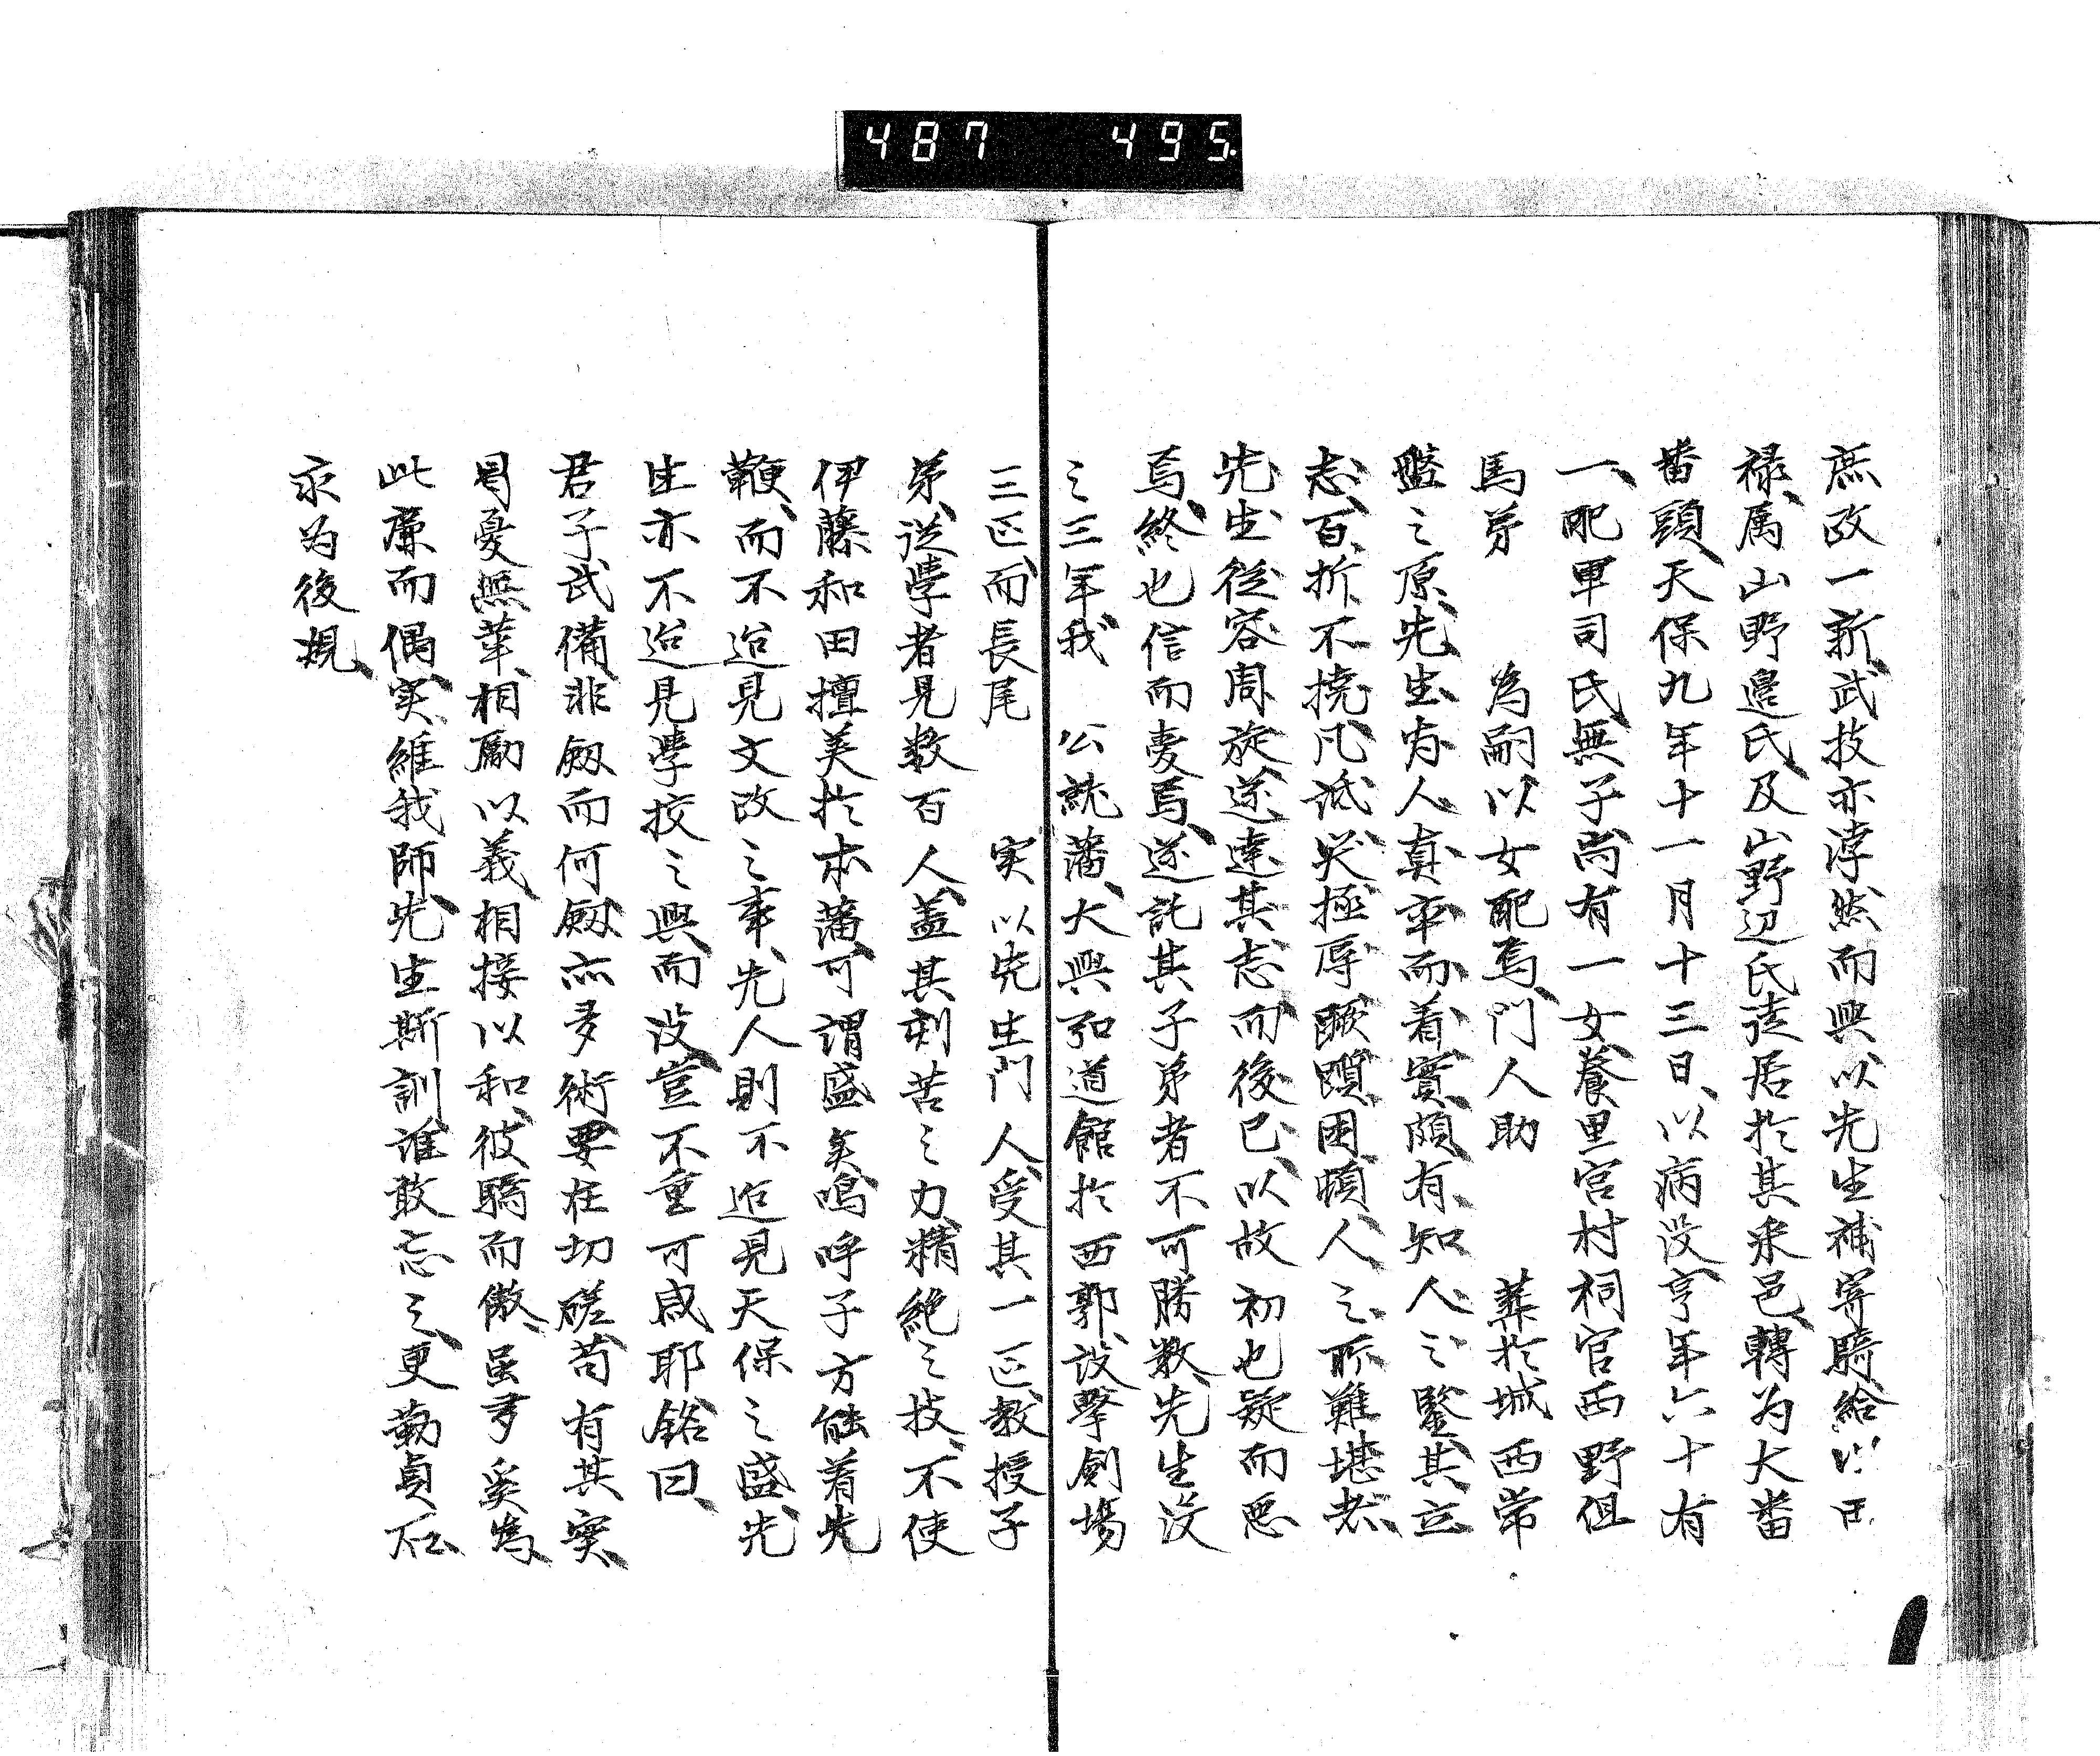 487 495
庶政一新、武技亦浡然而興、以先生補寄騎、給以
禄、属山野邉氏、及山野辺氏徒居於其采邑、轉为大番
番頭、天保九年十一月十三日、以病没、亨年六十有
一、配軍司氏、無子、尚有一女、養里宮村祠官西野伹
馬弟　　為嗣以女配焉、門人助　　葬於城西常
盤之原、先生为人真率而着實、頗有知人之鑒、其立
志、百折不撓、凡詆哭極辱、蹶躓困頓、人之所難堪者、
先生従容周旋、遂達其志而後已、以故初也疑而悪
焉、終也信而愛焉、遂託其子弟者不可勝数、先生没
之三年、我　公就藩、大興弘道館於西郭、設撃劍場
三区、而長尾　　実以先生門人、受其一区、教授子
弟、従学者見数百人、盖其刺苦之力、精絶之技、不使
伊藤和田擅美於本藩、可謂盛矣、嗚呼子方能着先
鞭、而不迨見文政之事、先人則不迨見天保之盛、先
生亦不迨見学校之興、而没、豈不重可感耶、銘曰、
君子武備、非劔而何、劔亦多術、要在切磋、苟有其実、
曷憂無華、相励以義、相接以和、彼驕而傲、虽多奚為、
此廉而偶、実維我師、先生斯訓、誰敢忘之、更勒貞石、
永为後規、